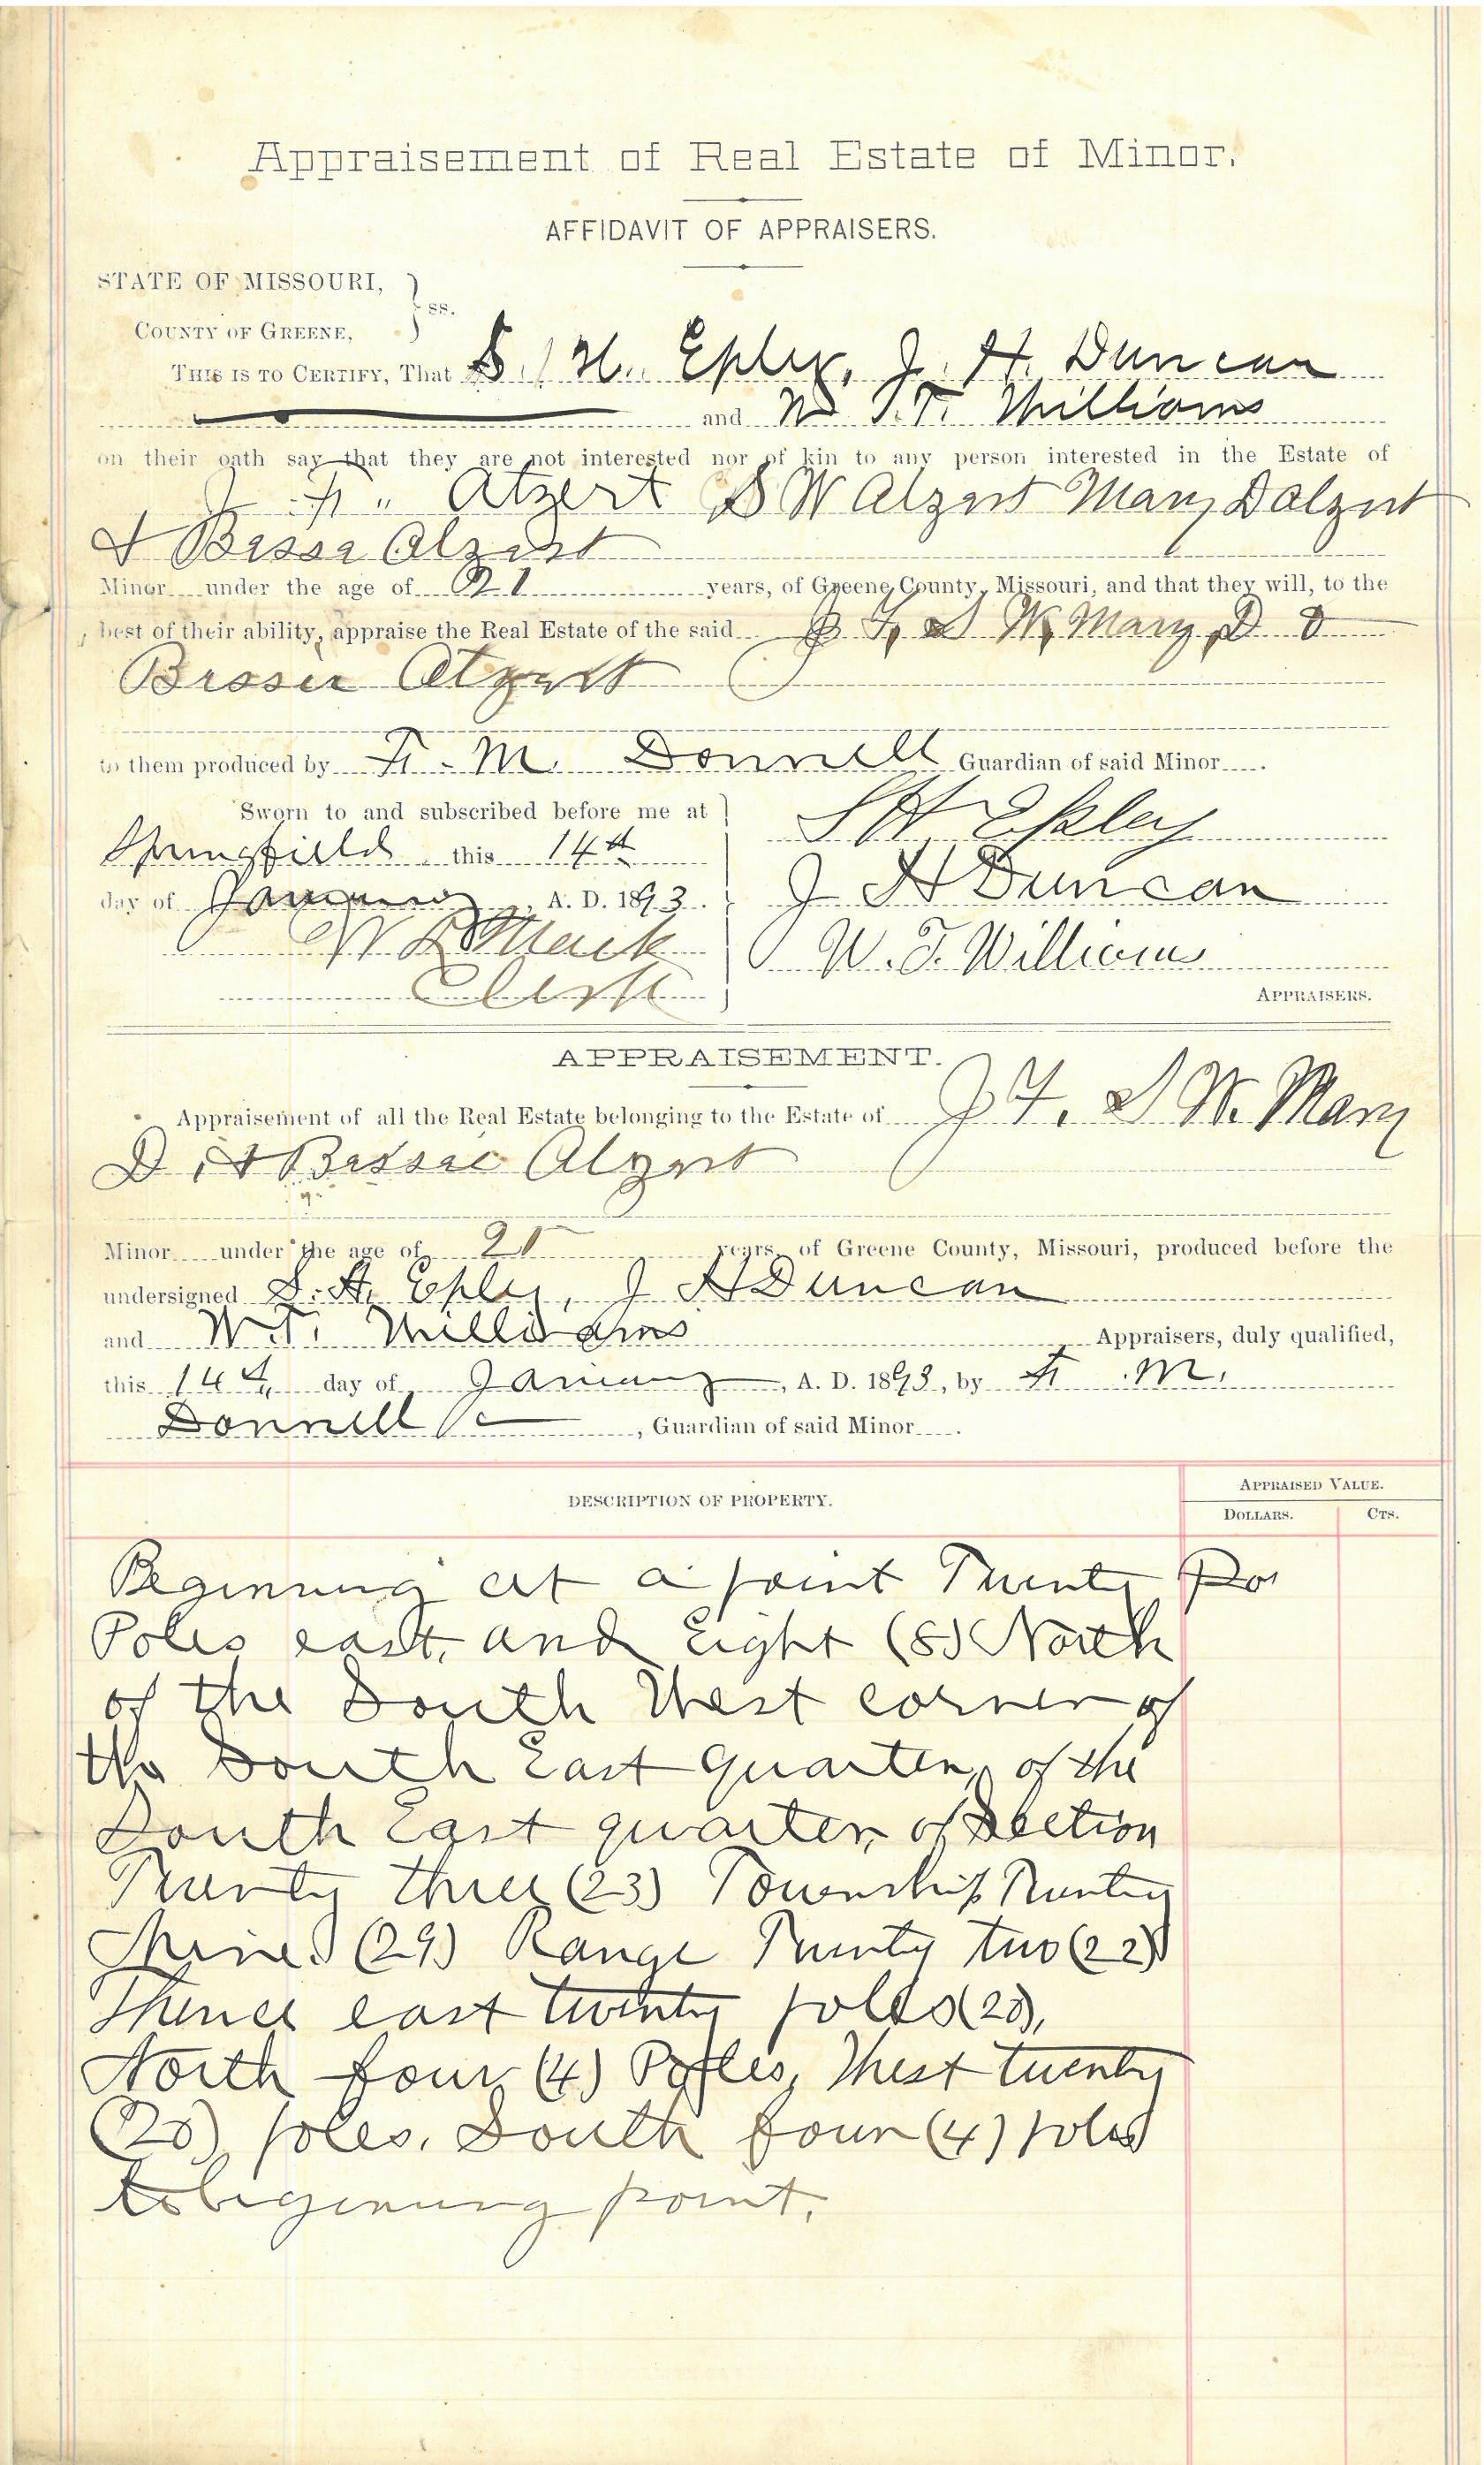 Appraisement of Real Estate of Minor.
AFFIDAVIT OF APPRAISERS.
STATE OF MISSOURI,
COUNTY OF GREENE, } ss.
THIS IS TO CERTIFY, That S. H. Epley, J. H. Duncan
and W. T. Williams
on their oath say that they are not interested nor of kin to any person interested in the Estate of
J. F. Atzert S W Atzert Mary D Atzert
& Bessie Atzert
Minor under the age of 21 years, of Greene County, Missouri, and that they will, to the
best of their ability, appraise the Real Estate of the said J F, S W, Mary, D &
Bessie Atzert
to them produced by F. M. Donnell Guardian of said Minor .
Sworn to and subscribed before me at
Springfield this 14th
day of January, A. D. 1893.
Clerk
S H Epley
J H Duncan
W. T. Williams
APPRAISERS.
APPRAISEMENT.
Appraisement of all the Real Estate belonging to the Estate of J F, S W. Mary
D, & Bessie Atzert
Minor under the age of 21 years, of Greene County, Missouri, produced before the
undersigned S. H. Epley, J H Duncan
and W. T. Williams Appraisers, duly qualified,
this 14th day of January, A. D. 1893, by F. M.
Donnell, Guardian of said Minor .
DESCRIPTION OF PROPERTY.
APPRAISED VALUE.
DOLLARS. CTS.
Beginning at a point Twenty
Poles east, and Eight (8) North
of the South West corner of
the South East quarter, of the
South East quarter, of Section
Twenty three (23) Township Twenty
Nine (29) Range Twenty two (22)
Thence east twenty poles (20),
North four (4) Poles, West twenty
(20) poles, South four (4) poles
to begining point.